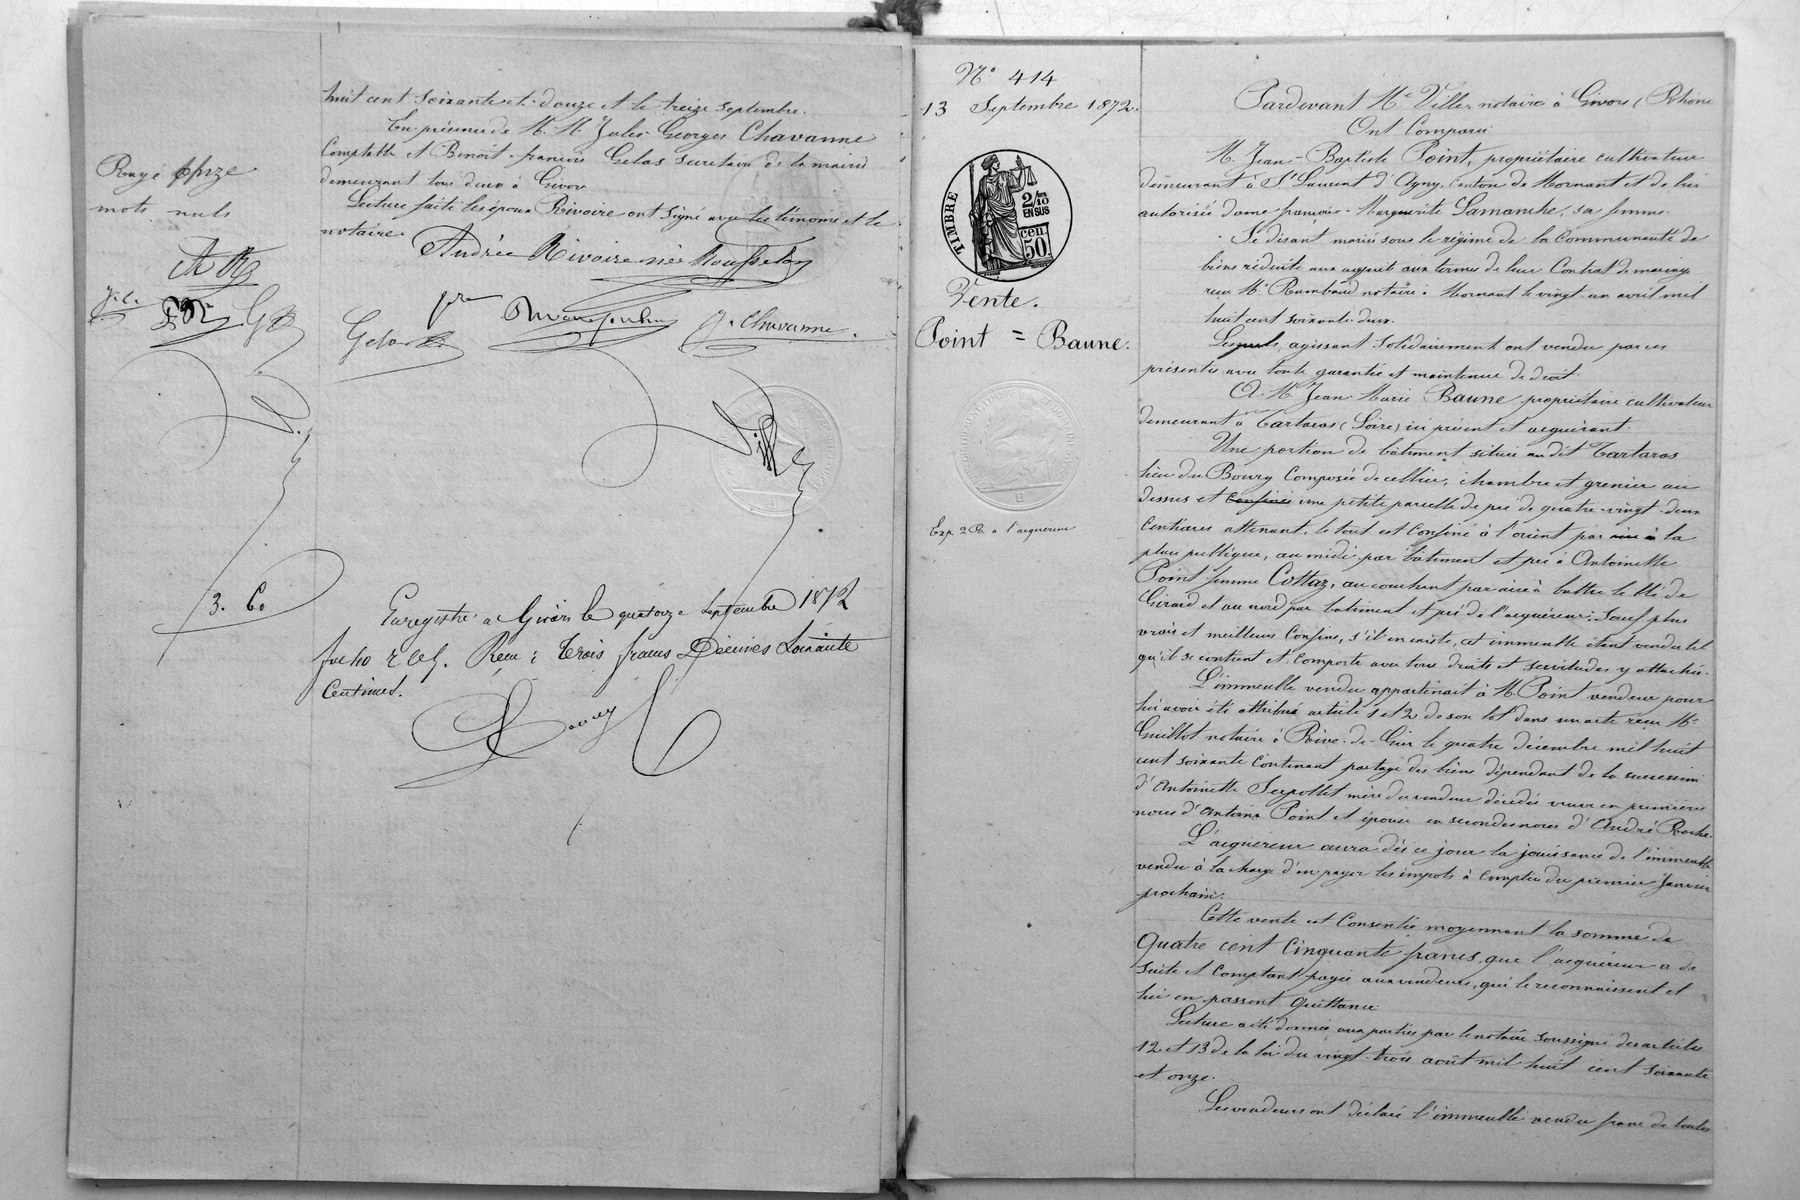 huit cent soixante et douze et le treize septembre.
En présence de M. M. Jules Georges Chavanne
Comptable et Benoît françois Gelas secretaire de la mairie
demeurant tous deux à Givors
Lecture faite les époux Rivoire ont signé avec les témoins et le
notaire.
Rayé onze
mots nuls
Andrée Rivoire née Rousselon
J. Chavanne.
3. 60
Enregistré à Givors le quatorze septembre 1872
folio Reçu : trois francs Décimes Soixante
Centimes.
N° 414
13 Septembre 1872.
TIMBRE
2/10
EN SUS
50 cen
Vente.
Point = Baune.
Exp. 2 R. à l'acquereur
Pardevant Me Ville, notaire à Givors (Rhône
Ont Comparu
M. Jean-Baptiste Point, propriétaire cultivateur
demeurant à St Laurent d'Agny, Canton de Mornant et de lui
autorisée dame françoise Marguerite Lamanche, sa femme.
Se disant mariés sous le régime de la Communauté de
biens réduite aux acquets aux termes de leur Contrat de mariage
reçu Me Rambaud notaire à Mornant le vingt un avril mil
huit cent soixante deux.
Lesquels, agissant solidairement ont vendu par ces
présentes avec toute garantie et maintenue de droit.
A M. Jean Marie Baune propriétaire cultivateur
demeurant à Tartaras (Loire) ici présent et acquérant.
Une portion de bâtiment située au dit Tartaras
lieu du Bourg Composée de cellier, chambre et grenier au
dessus et Confinée une petite parcelle de pré de quatre-vingt-deux
Centiares attenant, le tout est Confiné à l'orient par la
place publique, au midi par bâtiment et pré à Antoinette
Point femme Cottaz, au couchant par aire à battre le blé de
Girard et au nord par batiment et pré de l'acquéreur : Sauf plus
vrais et meilleurs Confins, s'il en existe, cet immeuble étant vendu tel
qu'il se contient et Comporte avec tous droits et servitudes y attachés.
L'immeuble vendu appartenait à M. Point vendeur pour
lui avoir été attribué article 1 et 2 de son lot dans un acte reçu Me
Guillot notaire à Rive-de-Gier le quatre décembre mil huit
cent soixante Contenant partage des biens dépendant de la succession
d'Antoinette Serpollet mère du vendeur décédée veuve en premières
noces d'Antoine Point et épouse en secondes noces d'André Roche.
L'acquéreur aura dès ce jour la jouissance de l'immeuble
vendu à la charge d'en payer les impots à Compter du premier Janvier
prochain.
Cette vente est Consentie moyennant la somme de
Quatre cent Cinquante francs, que l'acquéreur a de
suite et Comptant payée aux vendeurs, qui le reconnaissent et
lui en passent Quittance
Lecture a été donnée aux parties par le notaire soussigné des articles
12 et 13 de la loi du vingt-trois août mil huit cent soixante
et onze.
Les vendeurs ont déclaré l'immeuble vendu franc de toutes